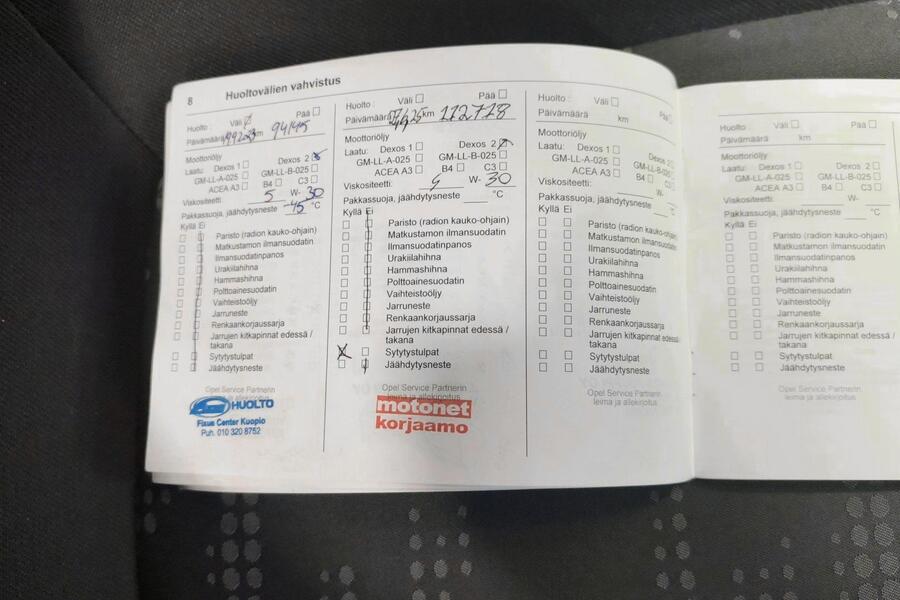 8 Huoltovälien vahvistus
Huolto : Väli ☑ Pää ☐
Päivämäärä km 94145
Moottoriöljy
Laatu: Dexos 1 ☐ Dexos 2 ☒
GM-LL-A-025 ☐ GM-LL-B-025 ☐
ACEA A3 ☐ B4 ☐ C3 ☐
Viskositeetti 5 W- 30
Pakkassuoja, jäähdytysneste -45 °C
Kyllä Ei
Paristo (radion kauko-ohjain)
Matkustamon ilmansuodatin
Ilmansuodatinpanos
Urakiilahihna
Hammashihna
Polttoainesuodatin
Vaihteistoöljy
Jarruneste
Renkaankorjaussarja
Jarrujen kitkapinnat edessä /
takana
Sytytystulpat
Jäähdytysneste
Opel Service Partnerin
leima ja allekirjoitus
HUOLTO
Fixus Center Kuopio
Puh. 010 320 8752
Huolto : Väli ☐ Pää ☐
Päivämäärä km 112718
Moottoriöljy
Laatu: Dexos 1 ☐ Dexos 2 ☑
GM-LL-A-025 ☐ GM-LL-B-025 ☐
ACEA A3 ☐ B4 ☐ C3 ☐
Viskositeetti: W- 30
Pakkassuoja, jäähdytysneste °C
Kyllä Ei
Paristo (radion kauko-ohjain)
Matkustamon ilmansuodatin
Ilmansuodatinpanos
Urakiilahihna
Hammashihna
Polttoainesuodatin
Vaihteistoöljy
Jarruneste
Renkaankorjaussarja
Jarrujen kitkapinnat edessä /
takana
Sytytystulpat
Jäähdytysneste
Opel Service Partnerin
leima ja allekirjoitus
motonet
korjaamo
Huolto : Väli ☐ Pää ☐
Päivämäärä km
Moottoriöljy
Laatu: Dexos 1 ☐ Dexos 2 ☐
GM-LL-A-025 ☐ GM-LL-B-025 ☐
ACEA A3 ☐ B4 ☐ C3 ☐
Viskositeetti: W-
Pakkassuoja, jäähdytysneste °C
Kyllä Ei
Paristo (radion kauko-ohjain)
Matkustamon ilmansuodatin
Ilmansuodatinpanos
Urakiilahihna
Hammashihna
Polttoainesuodatin
Vaihteistoöljy
Jarruneste
Renkaankorjaussarja
Jarrujen kitkapinnat edessä /
takana
Sytytystulpat
Jäähdytysneste
Opel Service Partnerin
leima ja allekirjoitus
Huolto : Väli ☐ Pää ☐
Päivämäärä km
Moottoriöljy
Laatu: Dexos 1 ☐ Dexos 2 ☐
GM-LL-A-025 ☐ GM-LL-B-025 ☐
ACEA A3 ☐ B4 ☐ C3 ☐
Viskositeetti: W-
Pakkassuoja, jäähdytysneste °C
Kyllä Ei
Paristo (radion kauko-ohjain)
Matkustamon ilmansuodatin
Ilmansuodatinpanos
Urakiilahihna
Hammashihna
Polttoainesuodatin
Vaihteistoöljy
Jarruneste
Renkaankorjaussarja
Jarrujen kitkapinnat edessä /
takana
Sytytystulpat
Jäähdytysneste
Opel Service Partnerin
leima ja allekirjoitus